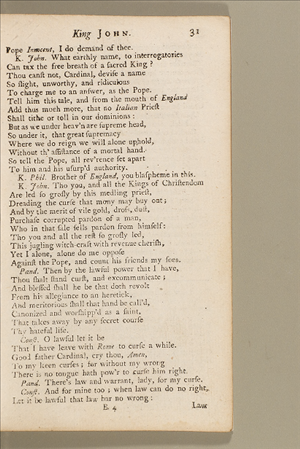 King JOHN. 31
Pope Innocent, I do demand of thee.
K. John. What earthly name, to interrogatories
Can tax the free breath of a sacred King?
Thou canst not, Cardinal, devise a name
So slight, unworthy, and ridiculous
To charge me to an answer, as the Pope.
Tell him this tale, and from the mouth of England
Add thus much more, that no Italian Priest
Shall tithe or toll in our dominions:
But as we under heav'n are supreme head,
So under it, that great supremacy
Where we do reign we will alone uphold,
Without th' assistance of a mortal hand.
So tell the Pope, all rev'rence set apart
To him and his usurp'd authority.
K. Phil. Brother of England, you blaspheme in this.
K John. Tho you, and all the Kings of Christendom
Are led so grosly by this medling priest,
Dreading the curse that mony may buy out;
And by the merit of vile gold, dross, dust,
Purchase corrupted pardon of a man,
Who in that sale sells pardon from himself:
Tho you and all the rest so grosly led,
This jugling witch-craft with revenue cherish,
Yet I alone, alone do me oppose
Against the Pope, and count his friends my foes.
Pand. Then by the lawful power that I have,
Thou shalt stand curst, and excommunicate;
And blessed shall he be that doth revolt
From his allegiance to an heretick,
And meritorious shall that hand be call'd,
Canonized and worshipp'd as a saint,
That takes away by any secret course
Thy hateful life.
Const. O lawful let it be
That I have leave with Rome to curse a while.
Good father Cardinal, cry thou, Amen,
To my keen curses; for without my wrong
There is no tongue hath pow'r to curse him right.
Pand. There's law and warrant, lady, for my curse.
Const. And for mine too; when law can do no right,
Let it be lawful that law bar no wrong:
E 4 Law